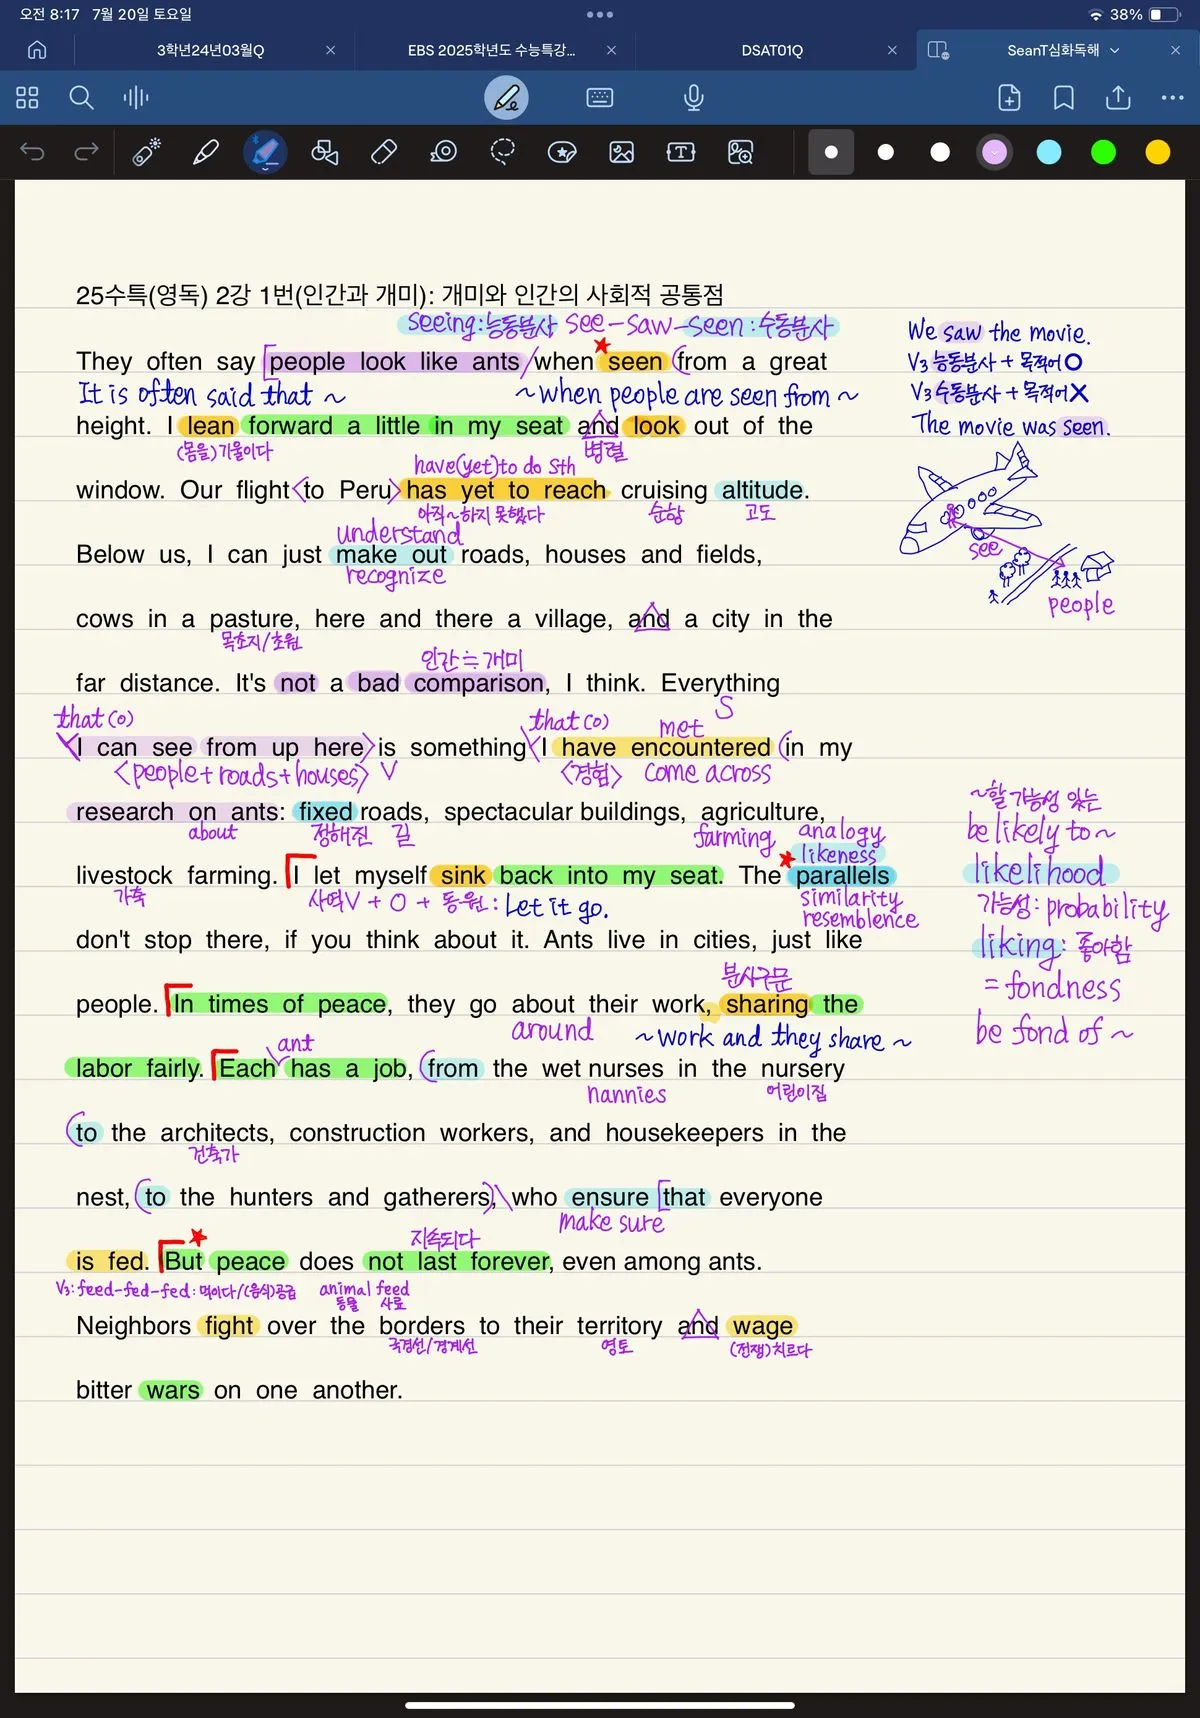 오전 8:17 7월 20일 토요일
38%
3학년24년03월Q
EBS 2025학년도 수능특강...
DSAT01Q
SeanT심화독해
25수특(영독) 2강 1번(인간과 개미): 개미와 인간의 사회적 공통점
seeing:능동분사 see-saw-seen:수동분사
They often say [people look like ants/when seen (from a great
It is often said that ~ ~when people are seen from ~
height. I lean forward a little in my seat and look out of the
(몸을)기울이다 병렬
have(yet)to do sth
window. Our flight<to Peru>has yet to reach cruising altitude.
아직~하지 못했다 순항 고도
understand
Below us, I can just make out roads, houses and fields,
recognize
cows in a pasture, here and there a village, and a city in the
목초지/초원
인간≒개미
far distance. It's not a bad comparison, I think. Everything
that(o) that(o) met S
<I can see from up here> is something <I have encountered (in my
<people+roads+houses> V <경험> come across
research on ants: fixed roads, spectacular buildings, agriculture,
about 정해진 길 farming analogy
likeness
livestock farming. I let myself sink back into my seat. The parallels
가축 사역V + O + 동원: Let it go. similarity
resemblence
don't stop there, if you think about it. Ants live in cities, just like
분사구문
people. In times of peace, they go about their work, sharing the
around ~work and they share ~
ant
labor fairly. Each has a job, (from the wet nurses in the nursery
nannies 어린이집
(to the architects, construction workers, and housekeepers in the
건축가
nest, (to the hunters and gatherers),\ who ensure [that everyone
make sure
지속되다
is fed. But peace does not last forever, even among ants.
V3:feed-fed-fed:먹이다/(음식)공급 animal feed
동물 사료
Neighbors fight over the borders to their territory and wage
국경선/경계선 영토 (전쟁)치르다
bitter wars on one another.
We saw the movie.
V3 능동분사 + 목적어O
V3 수동분사 + 목적어X
The movie was seen.
see
people
~할 가능성 있는
be likely to ~
likelihood
가능성: probability
liking: 좋아함
= fondness
be fond of ~